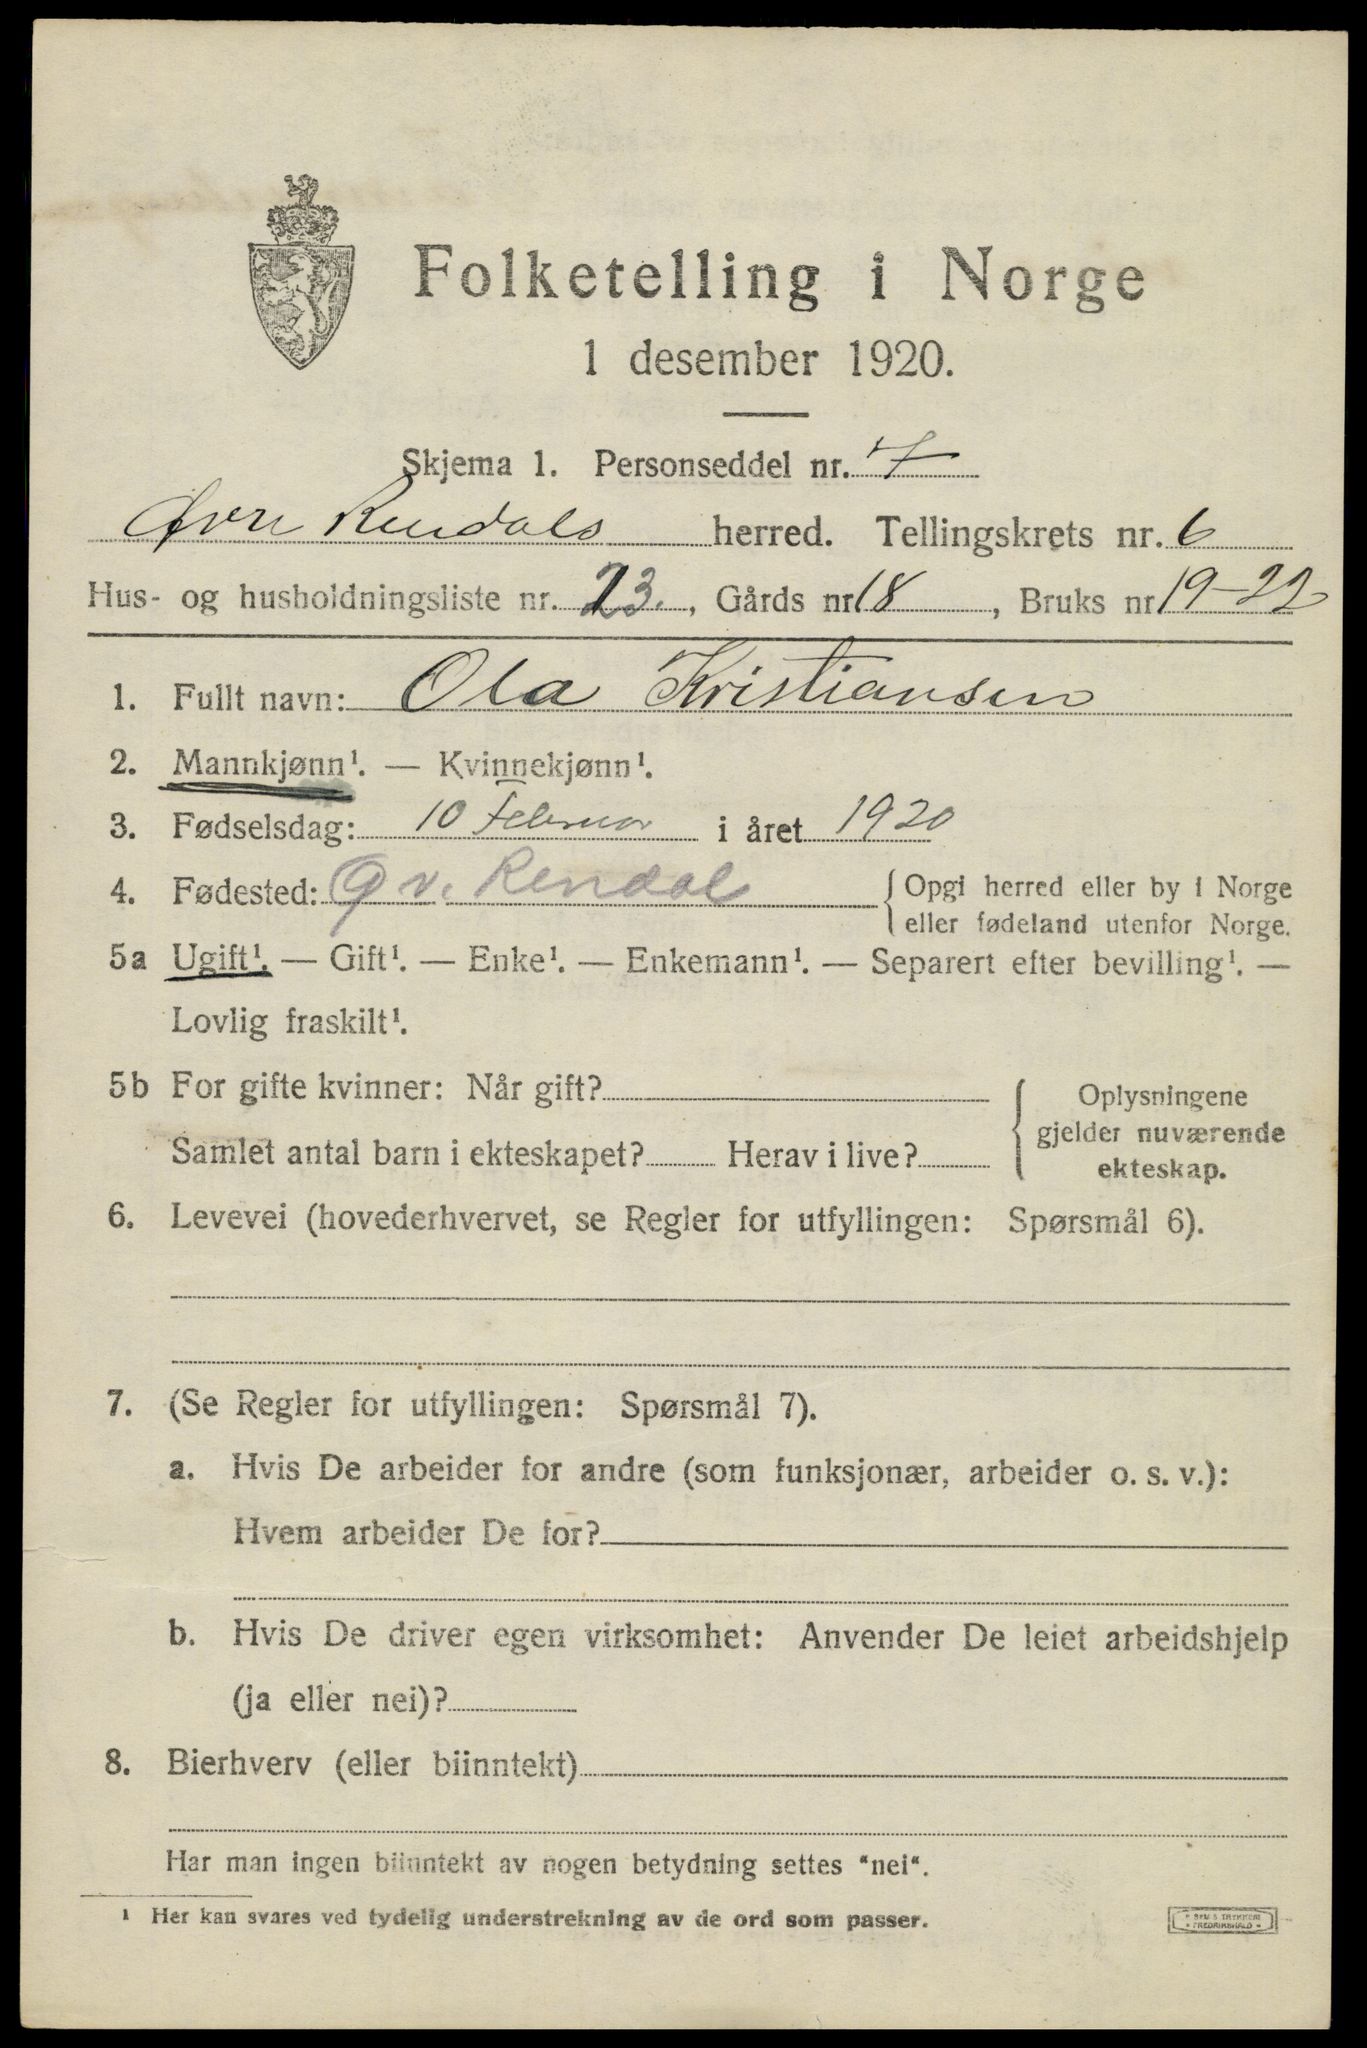 Folketelling i Norge
1 desember 1920.
Skjema 1. Personseddel nr. 7
Øvre Rendals herred. Tellingskrets nr. 6
Hus- og husholdningsliste nr. 23., Gårds nr 18, Bruks nr 19-22
1. Fullt navn: Ola Kristiansen
2. Mannkjønn¹. — Kvinnekjønn¹.
3. Fødselsdag: 10 Februar i året 1920
4. Fødested: Øv. Rendal {Opgi herred eller by i Norge
eller fødeland utenfor Norge.
5a Ugift¹. — Gift¹. — Enke¹. — Enkemann¹. — Separert efter bevilling¹. —
Lovlig fraskilt¹.
5b For gifte kvinner: Når gift?
Samlet antal barn i ekteskapet? Herav i live?
Oplysningene
gjelder nuværende
ekteskap.
6. Levevei (hovederhvervet, se Regler for utfyllingen: Spørsmål 6).
7. (Se Regler for utfyllingen: Spørsmål 7).
a. Hvis De arbeider for andre (som funksjonær, arbeider o. s. v.):
Hvem arbeider De for?
b. Hvis De driver egen virksomhet: Anvender De leiet arbeidshjelp
(ja eller nei)?
8. Bierhverv (eller biinntekt)
Har man ingen biinntekt av nogen betydning settes "nei".
¹ Her kan svares ved tydelig understrekning av de ord som passer.
TRYKKERI
FREDRIKSHALD